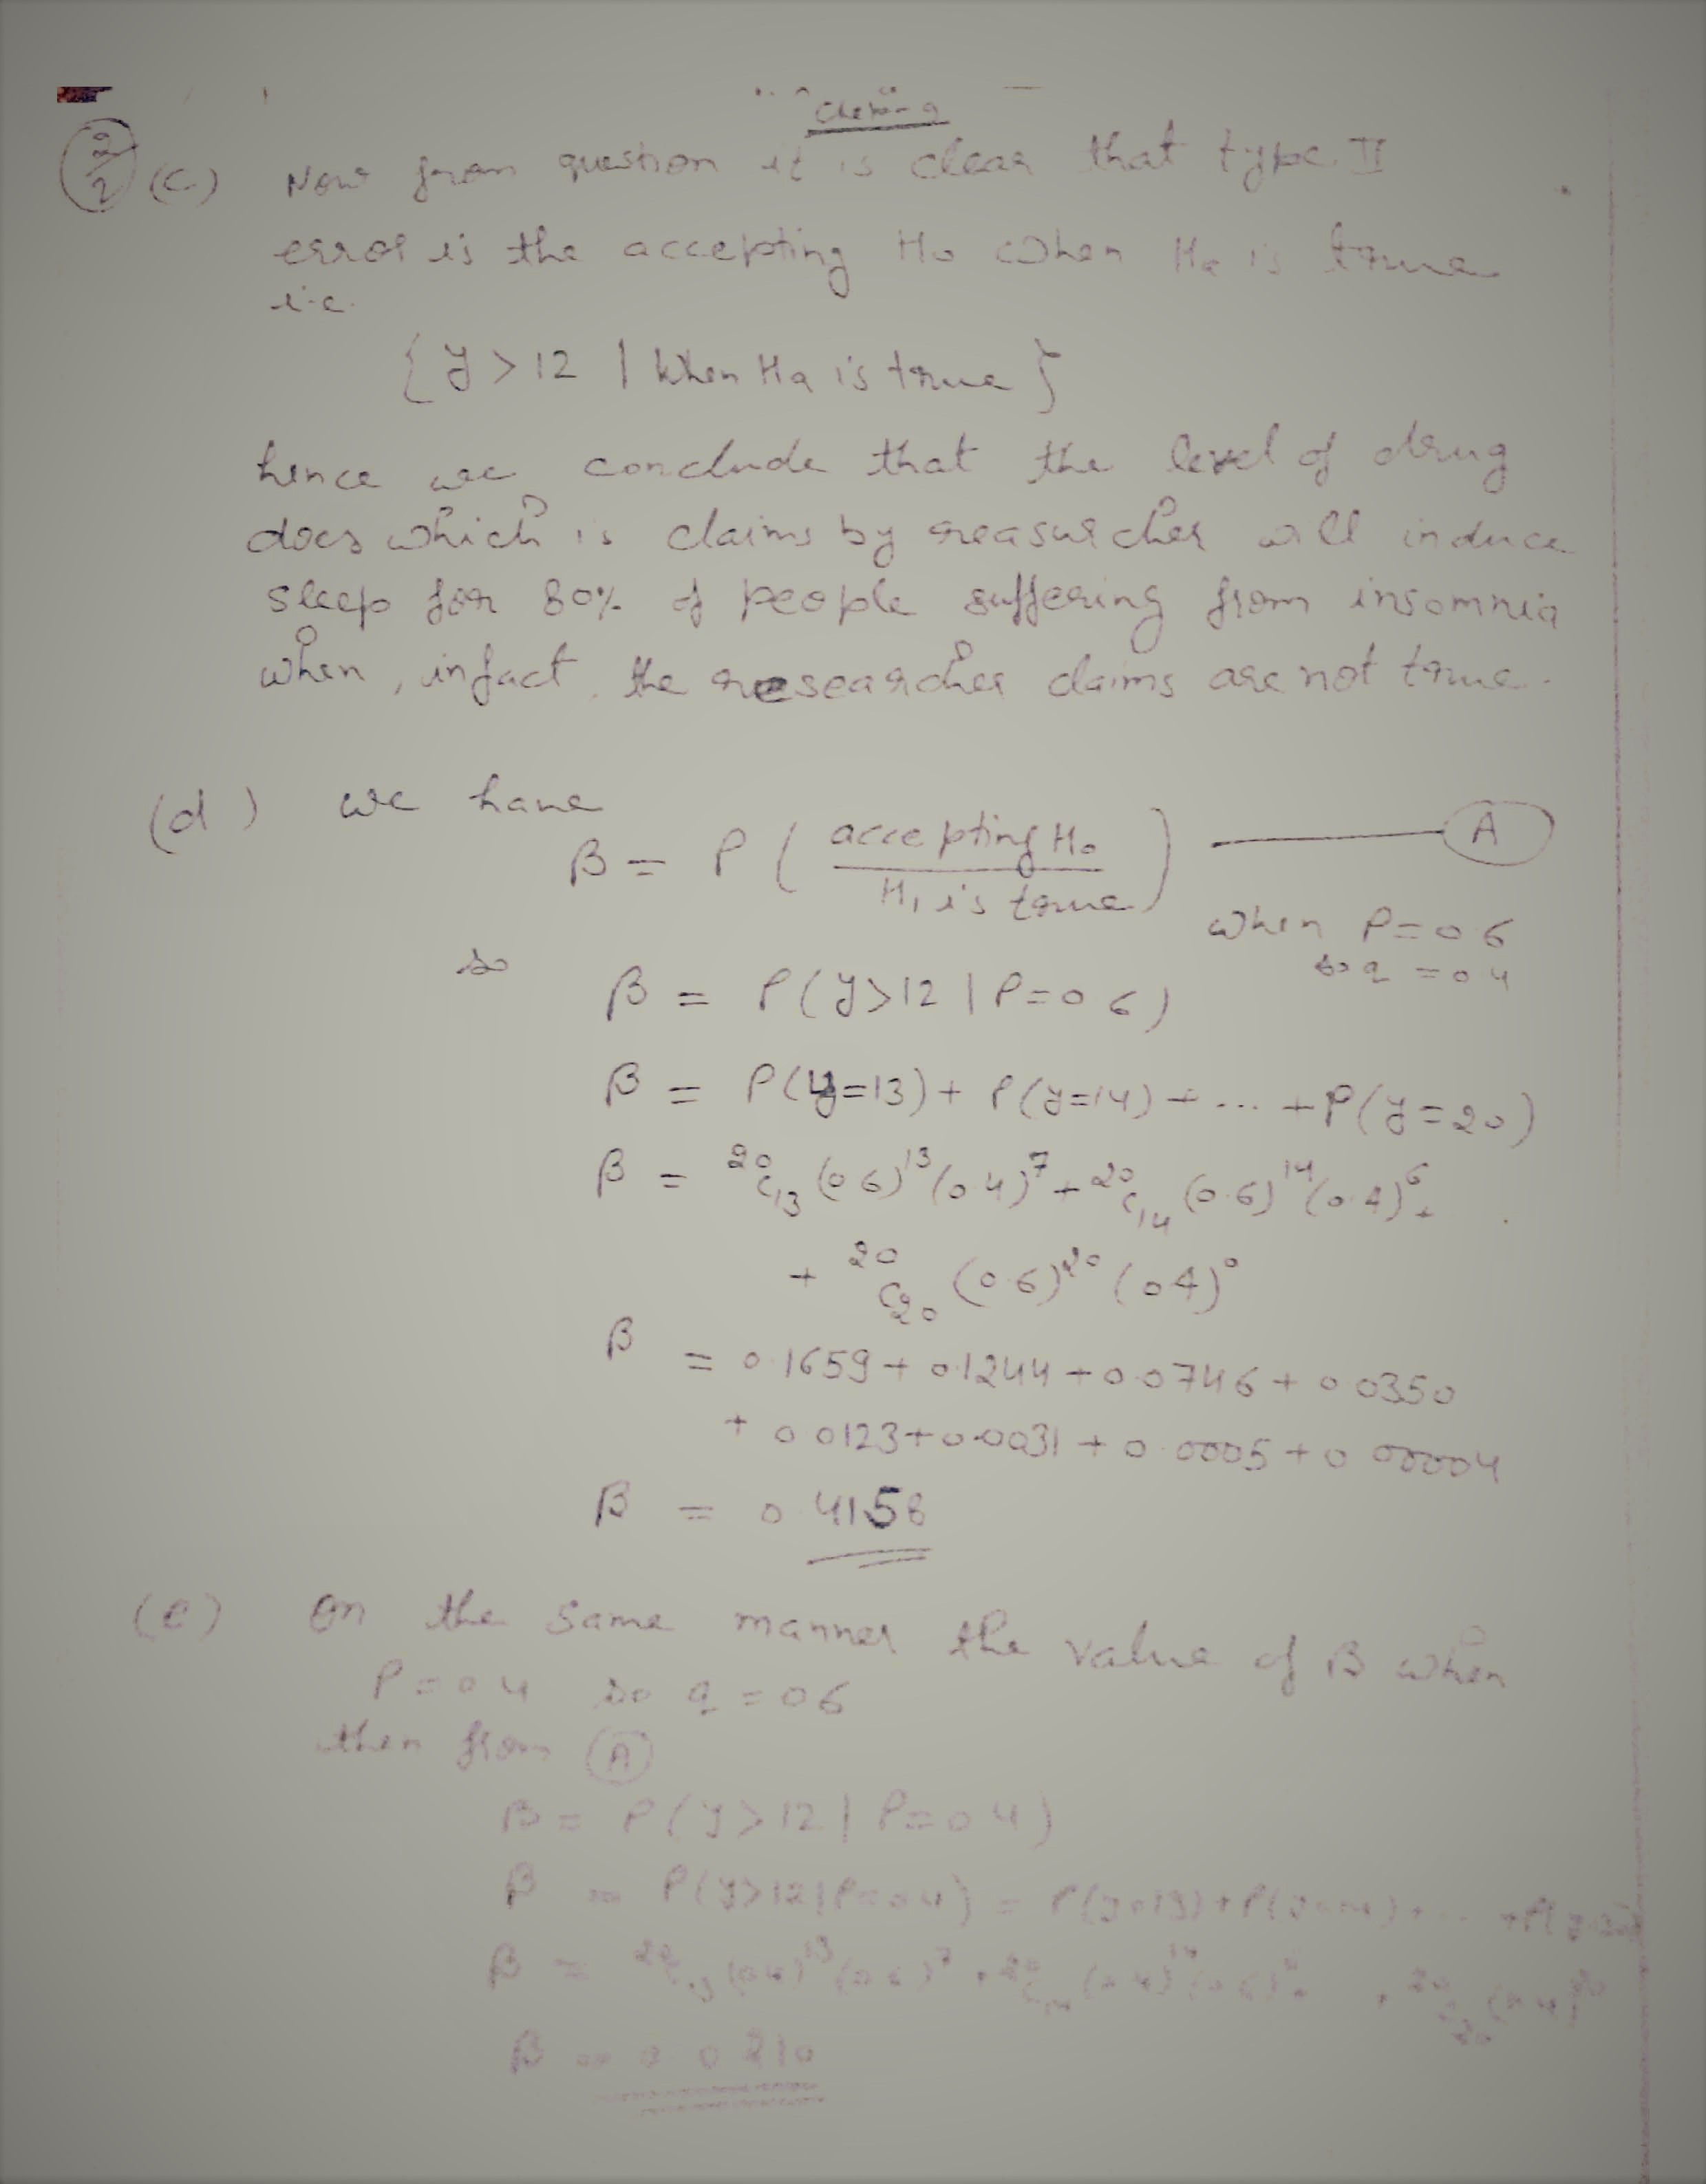 2/2 (c) Now from question it is clear that type II
error is the accepting H0 when Ha is true
i.e.
{ y > 12 | when Ha is true }
hence we conclude that the level of drug
does which is claims by reasurcher will induce
sleep for 80% of people suffering from insomnia
when, infact, the researcher claims are not true.
(d) we have
β = P ( accepting H0 / H1 is true ) — A
when P = 0.6
so q = 0.4
so
β = P(y > 12 | P = 0.6)
β = P(y=13) + P(y=14) + ... + P(y=20)
β = 20C13 (0.6)^13 (0.4)^7 + 20C14 (0.6)^14 (0.4)^6 +
+ 20C20 (0.6)^20 (0.4)^0
β = 0.1659 + 0.1244 + 0.0746 + 0.0350
+ 0.0123 + 0.0031 + 0.0005 + 0.00004
β = 0.4158
(e) On the same manner the value of β when
P = 0.4 so q = 0.6
then from A
β = P(y > 12 | P = 0.4)
β = P(y > 12 | P = 0.4) = P(y=13) + P(y=14) + ...
β = 20C13 (0.4)^13 (0.6)^7 + 20C14 (0.4)^14 (0.6)^6 +
β = 0.0210